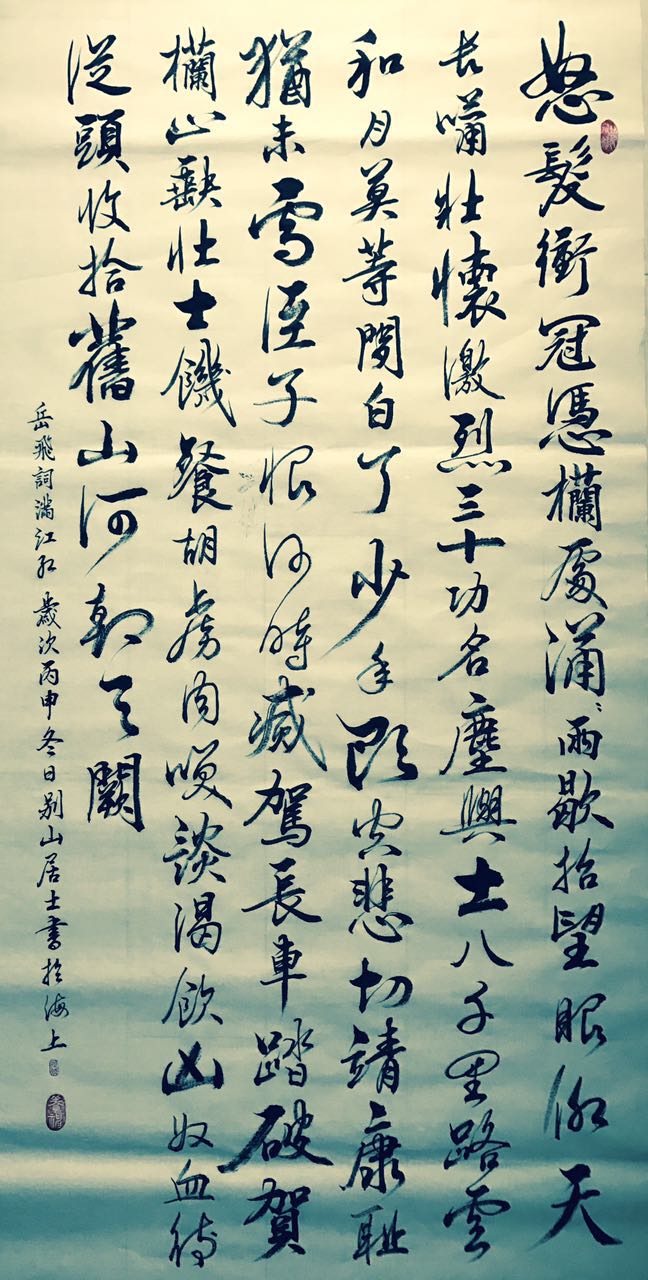 怒髮衝冠憑欄處瀟〻雨歇抬望眼仰天
長嘯壯懷激烈三十功名塵與土八千里路雲
和月莫等閒白了少年頭空悲切靖康耻
猶未雪臣子恨何時滅駕長車踏破賀
欄山缺壯士饑餐胡虜肉咲談渴飲凶奴血待
從頭收拾舊山河朝天闕
岳飛詞滿江紅 歲次丙申冬日别山居士書於海上